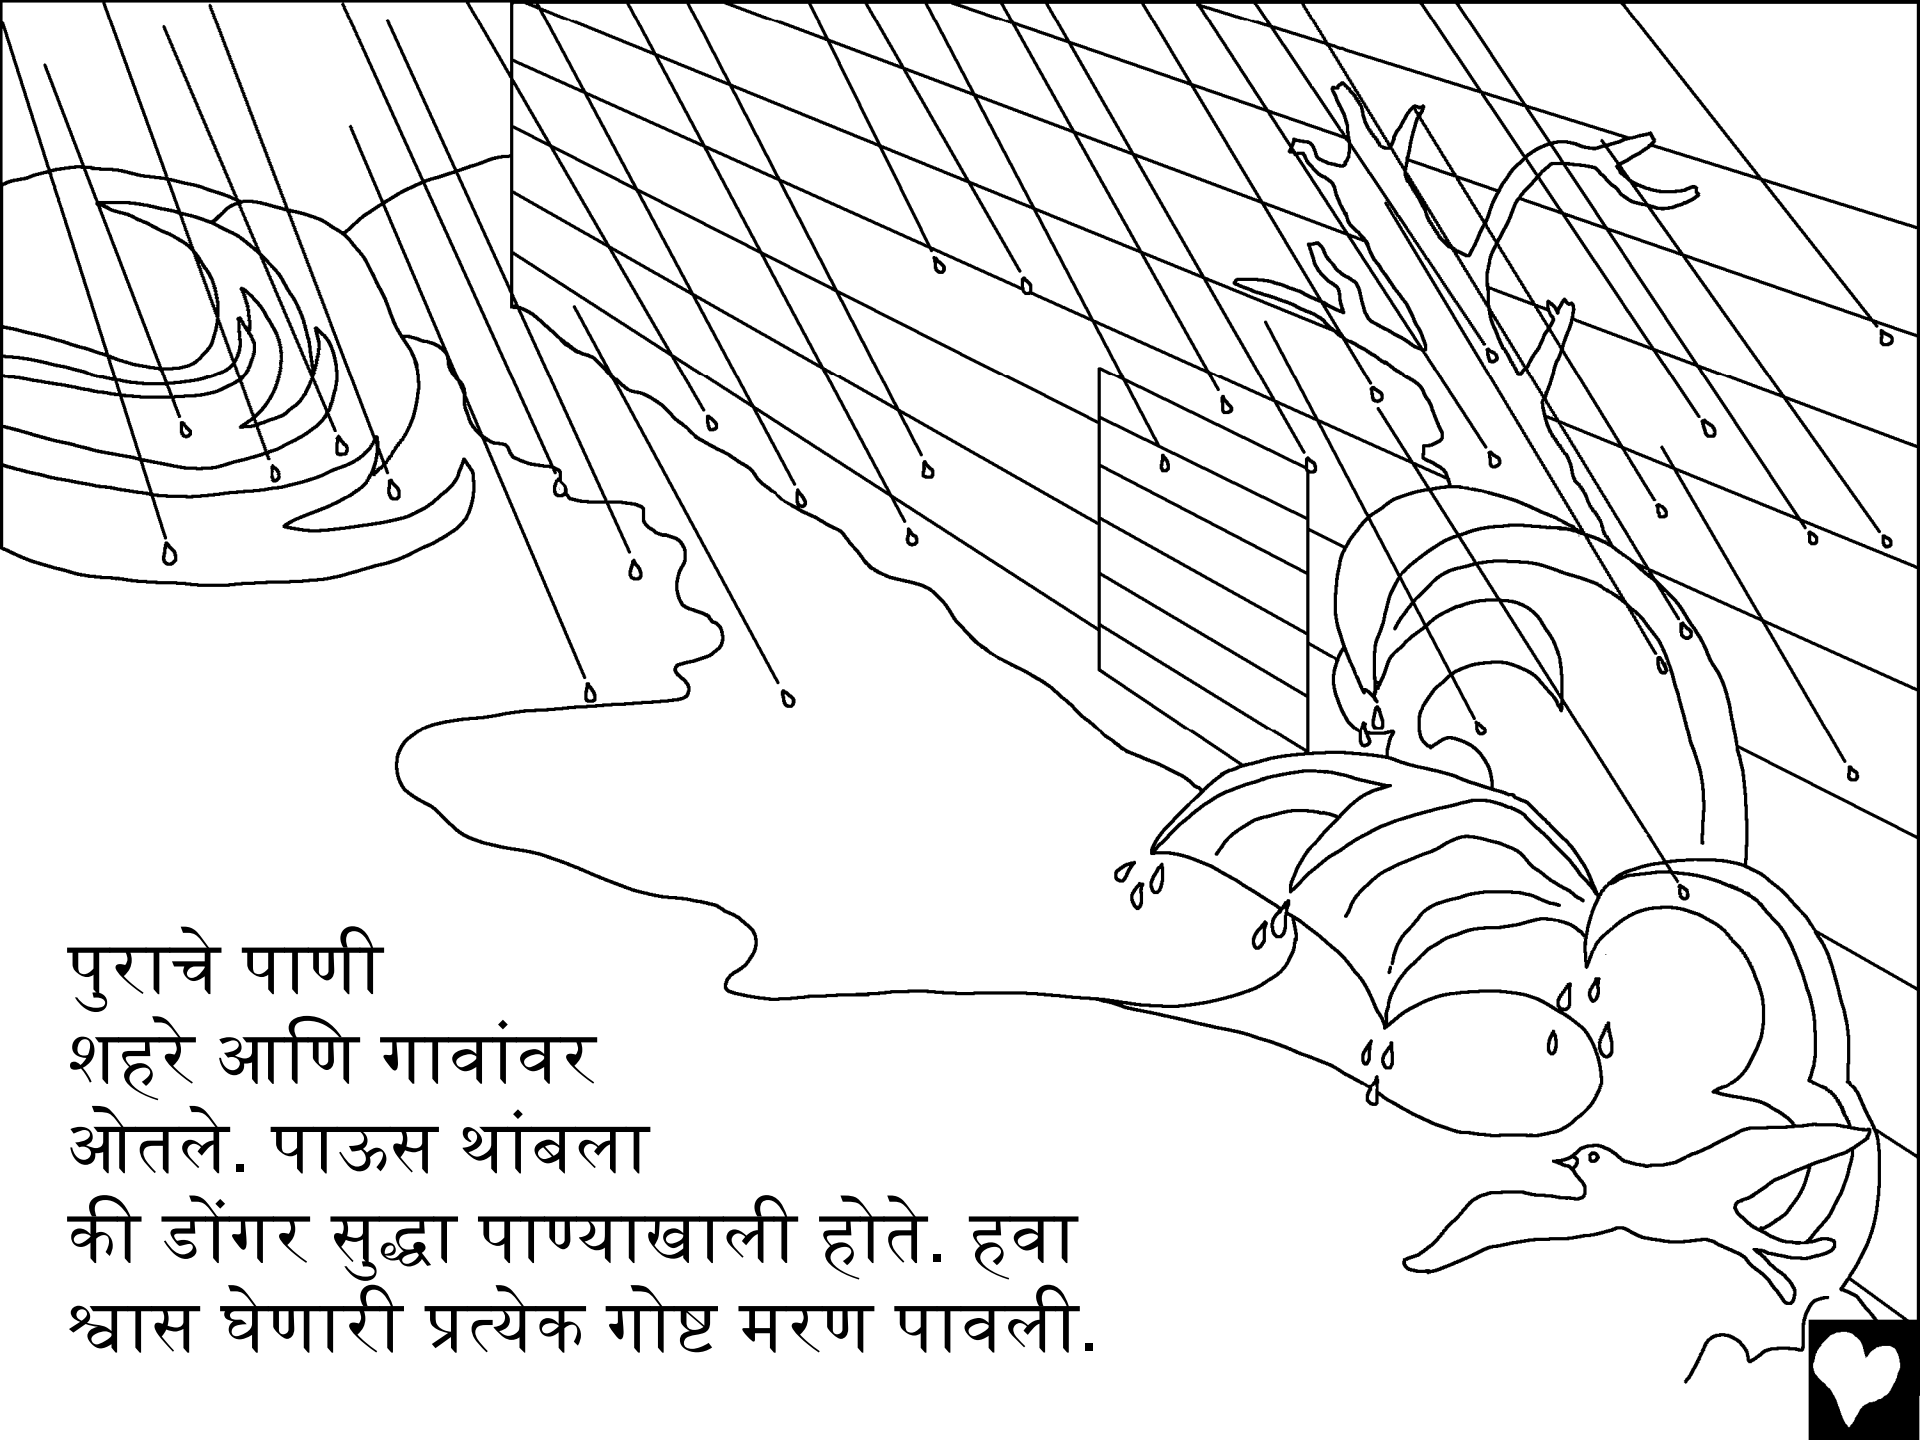 पुराचे पाणी
शहरे आणि गावांवर
ओतले. पाऊस थांबला
की डोंगर सुद्धा पाण्याखाली होते. हवा
श्वास घेणारी प्रत्येक गोष्ट मरण पावली.